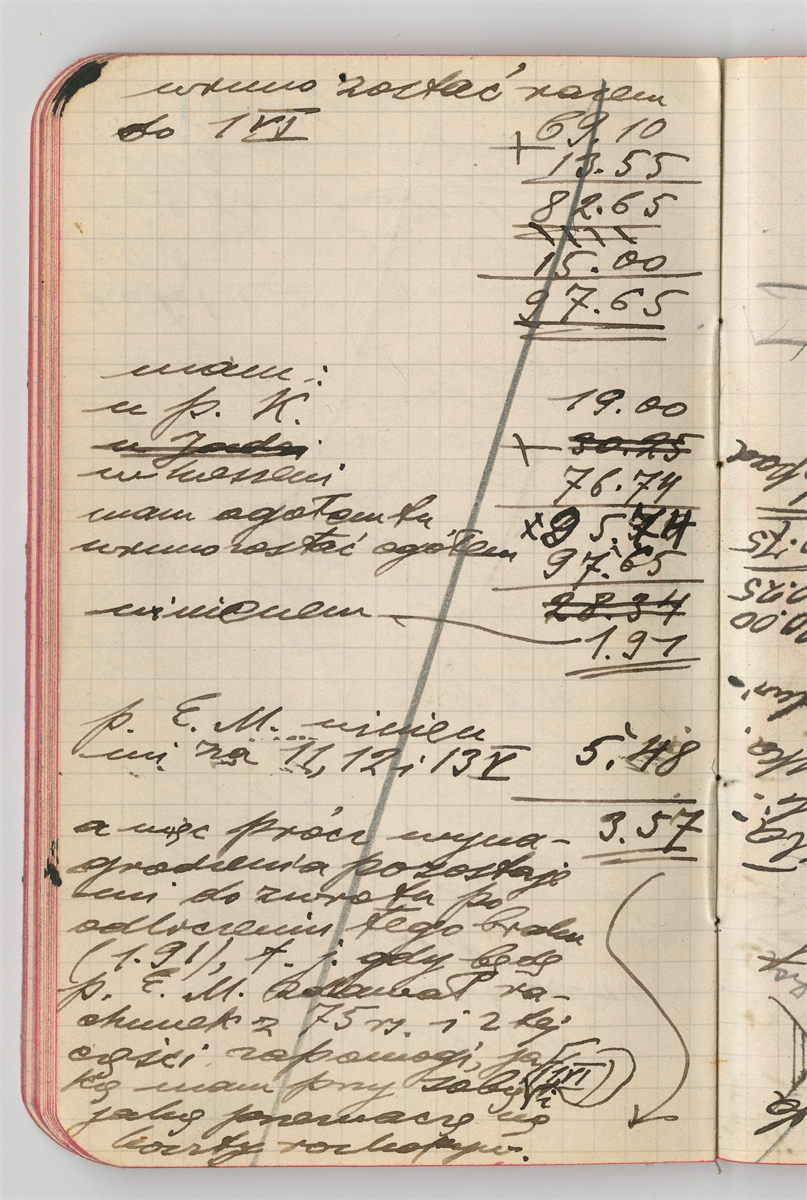 winno zostać razem
do 1 VI 69.10
+ 13.55
82.65
15.00
97.65
mam:
u p. K. 19.00
u Jadzi + 30.25
w kieszeni 76.74
mam ogółem tu 95.74
winno zostać ogółem 97.65
28.34
winienem 1.91
p. E. M. winien
mi za 11, 12 i 13 V 5.48
a więc prócz wyna- 3.57
grodzenia pozostaje
mi do zwrotu po
odliczeniu tego braku
(1.91), t. j. gdy będę
p. E. M. zdawał ra-
chunek z 75 i z tej
części zapomogi, ja-
ką mam przy sobie 1 VI i
jaką przeznaczę na
koszty